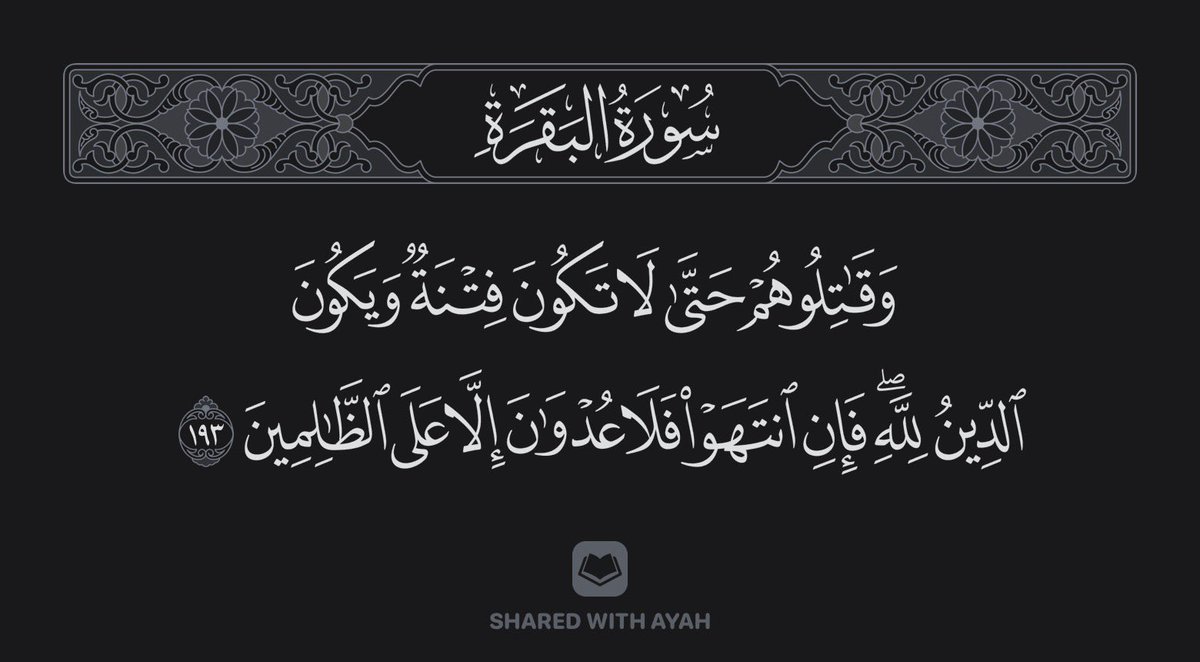 سُورَةُ البَقَرَةِ
وَقَٰتِلُوهُمۡ حَتَّىٰ لَا تَكُونَ فِتۡنَةٞ وَيَكُونَ
ٱلدِّينُ لِلَّهِۖ فَإِنِ ٱنتَهَوۡاْ فَلَا عُدۡوَٰنَ إِلَّا عَلَى ٱلظَّٰلِمِينَ ١٩٣
SHARED WITH AYAH